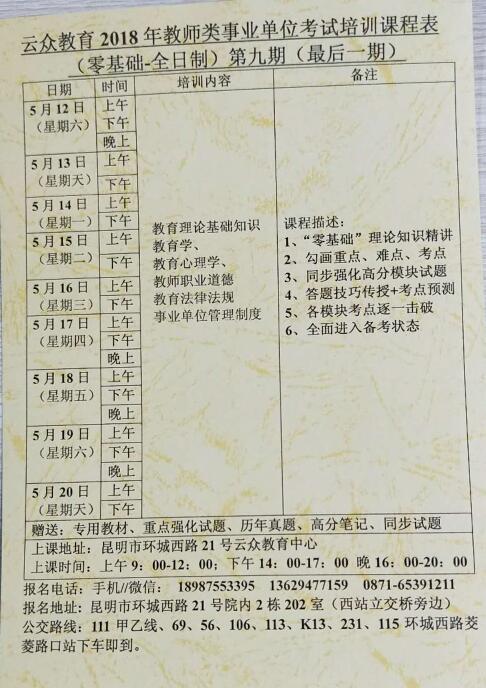 云众教育 2018 年教师类事业单位考试培训课程表
（零基础-全日制）第九期（最后一期）
日期 时间 培训内容 备注
5 月 12 日 上午
（星期六） 下午
晚上
5 月 13 日 上午
（星期天） 下午
5 月 14 日 上午
（星期一） 下午
5 月 15 日 上午
（星期二） 下午
5 月 16 日 上午
（星期三） 下午
5 月 17 日 上午
（星期四） 下午
晚上
5 月 18 日 上午
（星期五） 下午
晚上
5 月 19 日 上午
（星期六） 下午
晚上
5 月 20 日 上午
（星期天） 下午
教育理论基础知识
教育学、
教育心理学、
教师职业道德
教育法律法规
事业单位管理制度
课程描述：
1、“零基础”理论知识精讲
2、勾画重点、难点、考点
3、同步强化高分模块试题
4、答题技巧传授+考点预测
5、各模块考点逐一击破
6、全面进入备考状态
赠送：专用教材、重点强化试题、历年真题、高分笔记、同步试题
上课地址：昆明市环城西路 21 号云众教育中心
上课时间：上午 9：00-12：00；下午 14：00-17：00 晚 16：00-20：00
报名电话：手机//微信： 18987553395 13629477159 0871-65391211
报名地址：昆明市环城西路 21 号院内 2 栋 202 室（西站立交桥旁边）
公交路线：111 甲乙线、69、56、106、113、K13、231、115 环城西路茭
菱路口站下车即到。